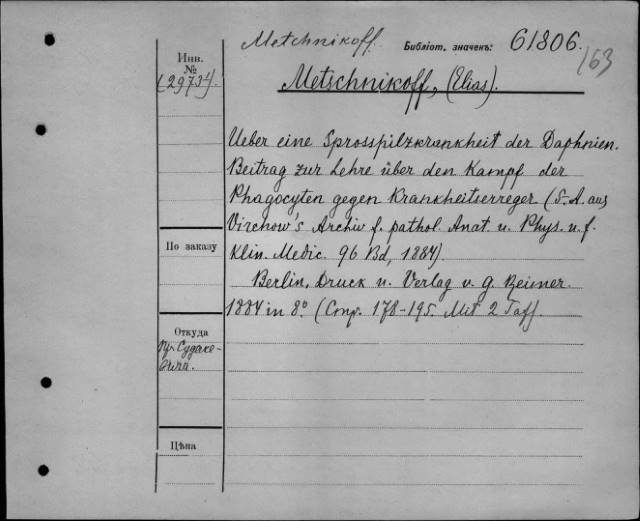 Metchnikoff. Библіот. значекъ: 61806.
163
Инв. №
(29734).
Metschnikoff, (Elias).
Ueber eine Sprosspilzkrankheit der Daphnien.
Beitrag zur Lehre über den Kampf der
Phagocyten gegen Krankheitserreger (S. A. aus
Virchow's Archiv f. pathol. Anat. u. Phys. u. f.
Klin. Medic. 96 Bd, 1884).
Berlin, Druck u. Verlag v. G. Reimer.
1884 in 8° (Стр. 178-195. Mit 2 Taf).
По заказу
Откуда
Цѣна